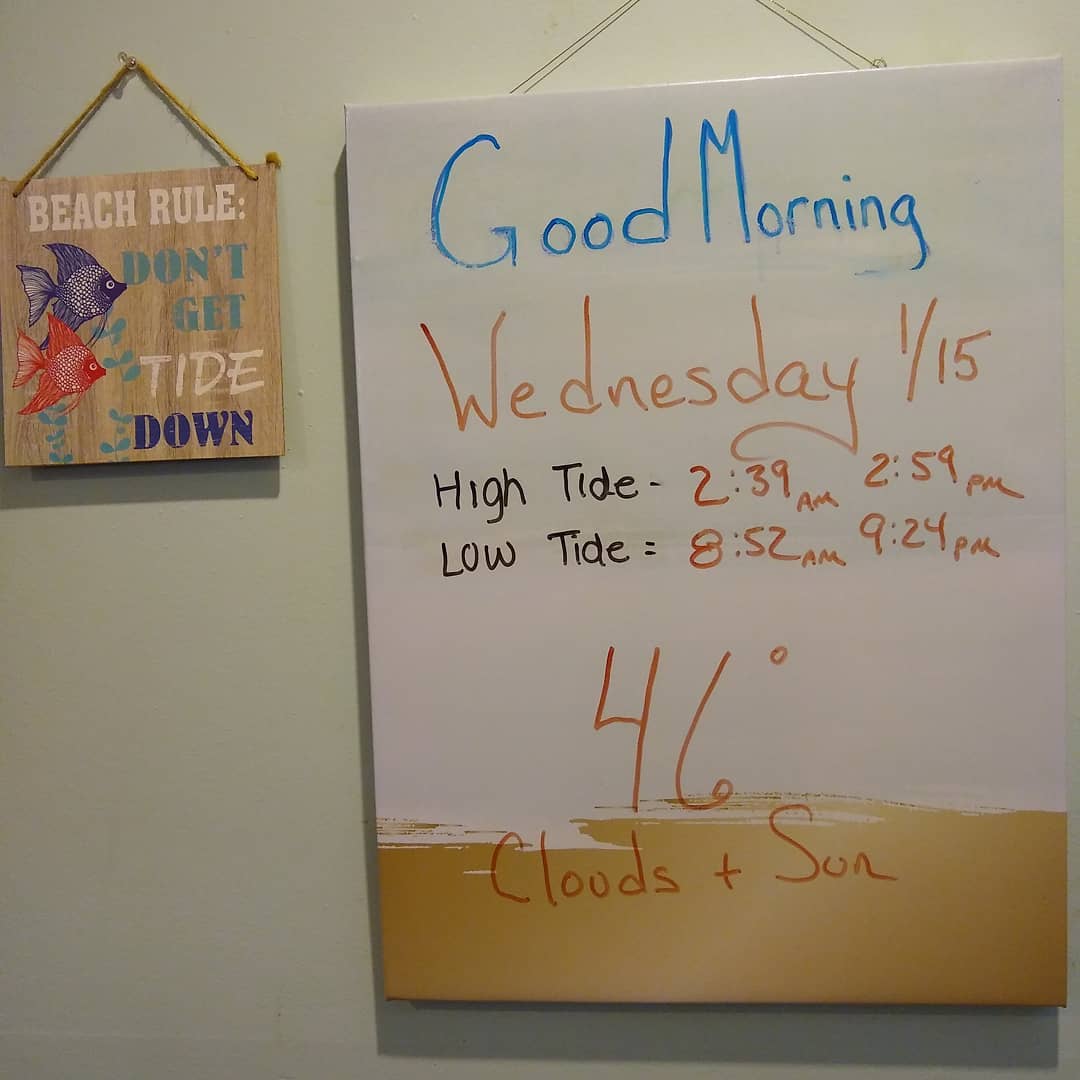 BEACH RULE:
DON'T
GET
TIDE
DOWN
Good Morning
Wednesday 1/15
High Tide - 2:39 AM 2:59 PM
Low Tide = 8:52 AM 9:24 PM
46°
Clouds + Sun